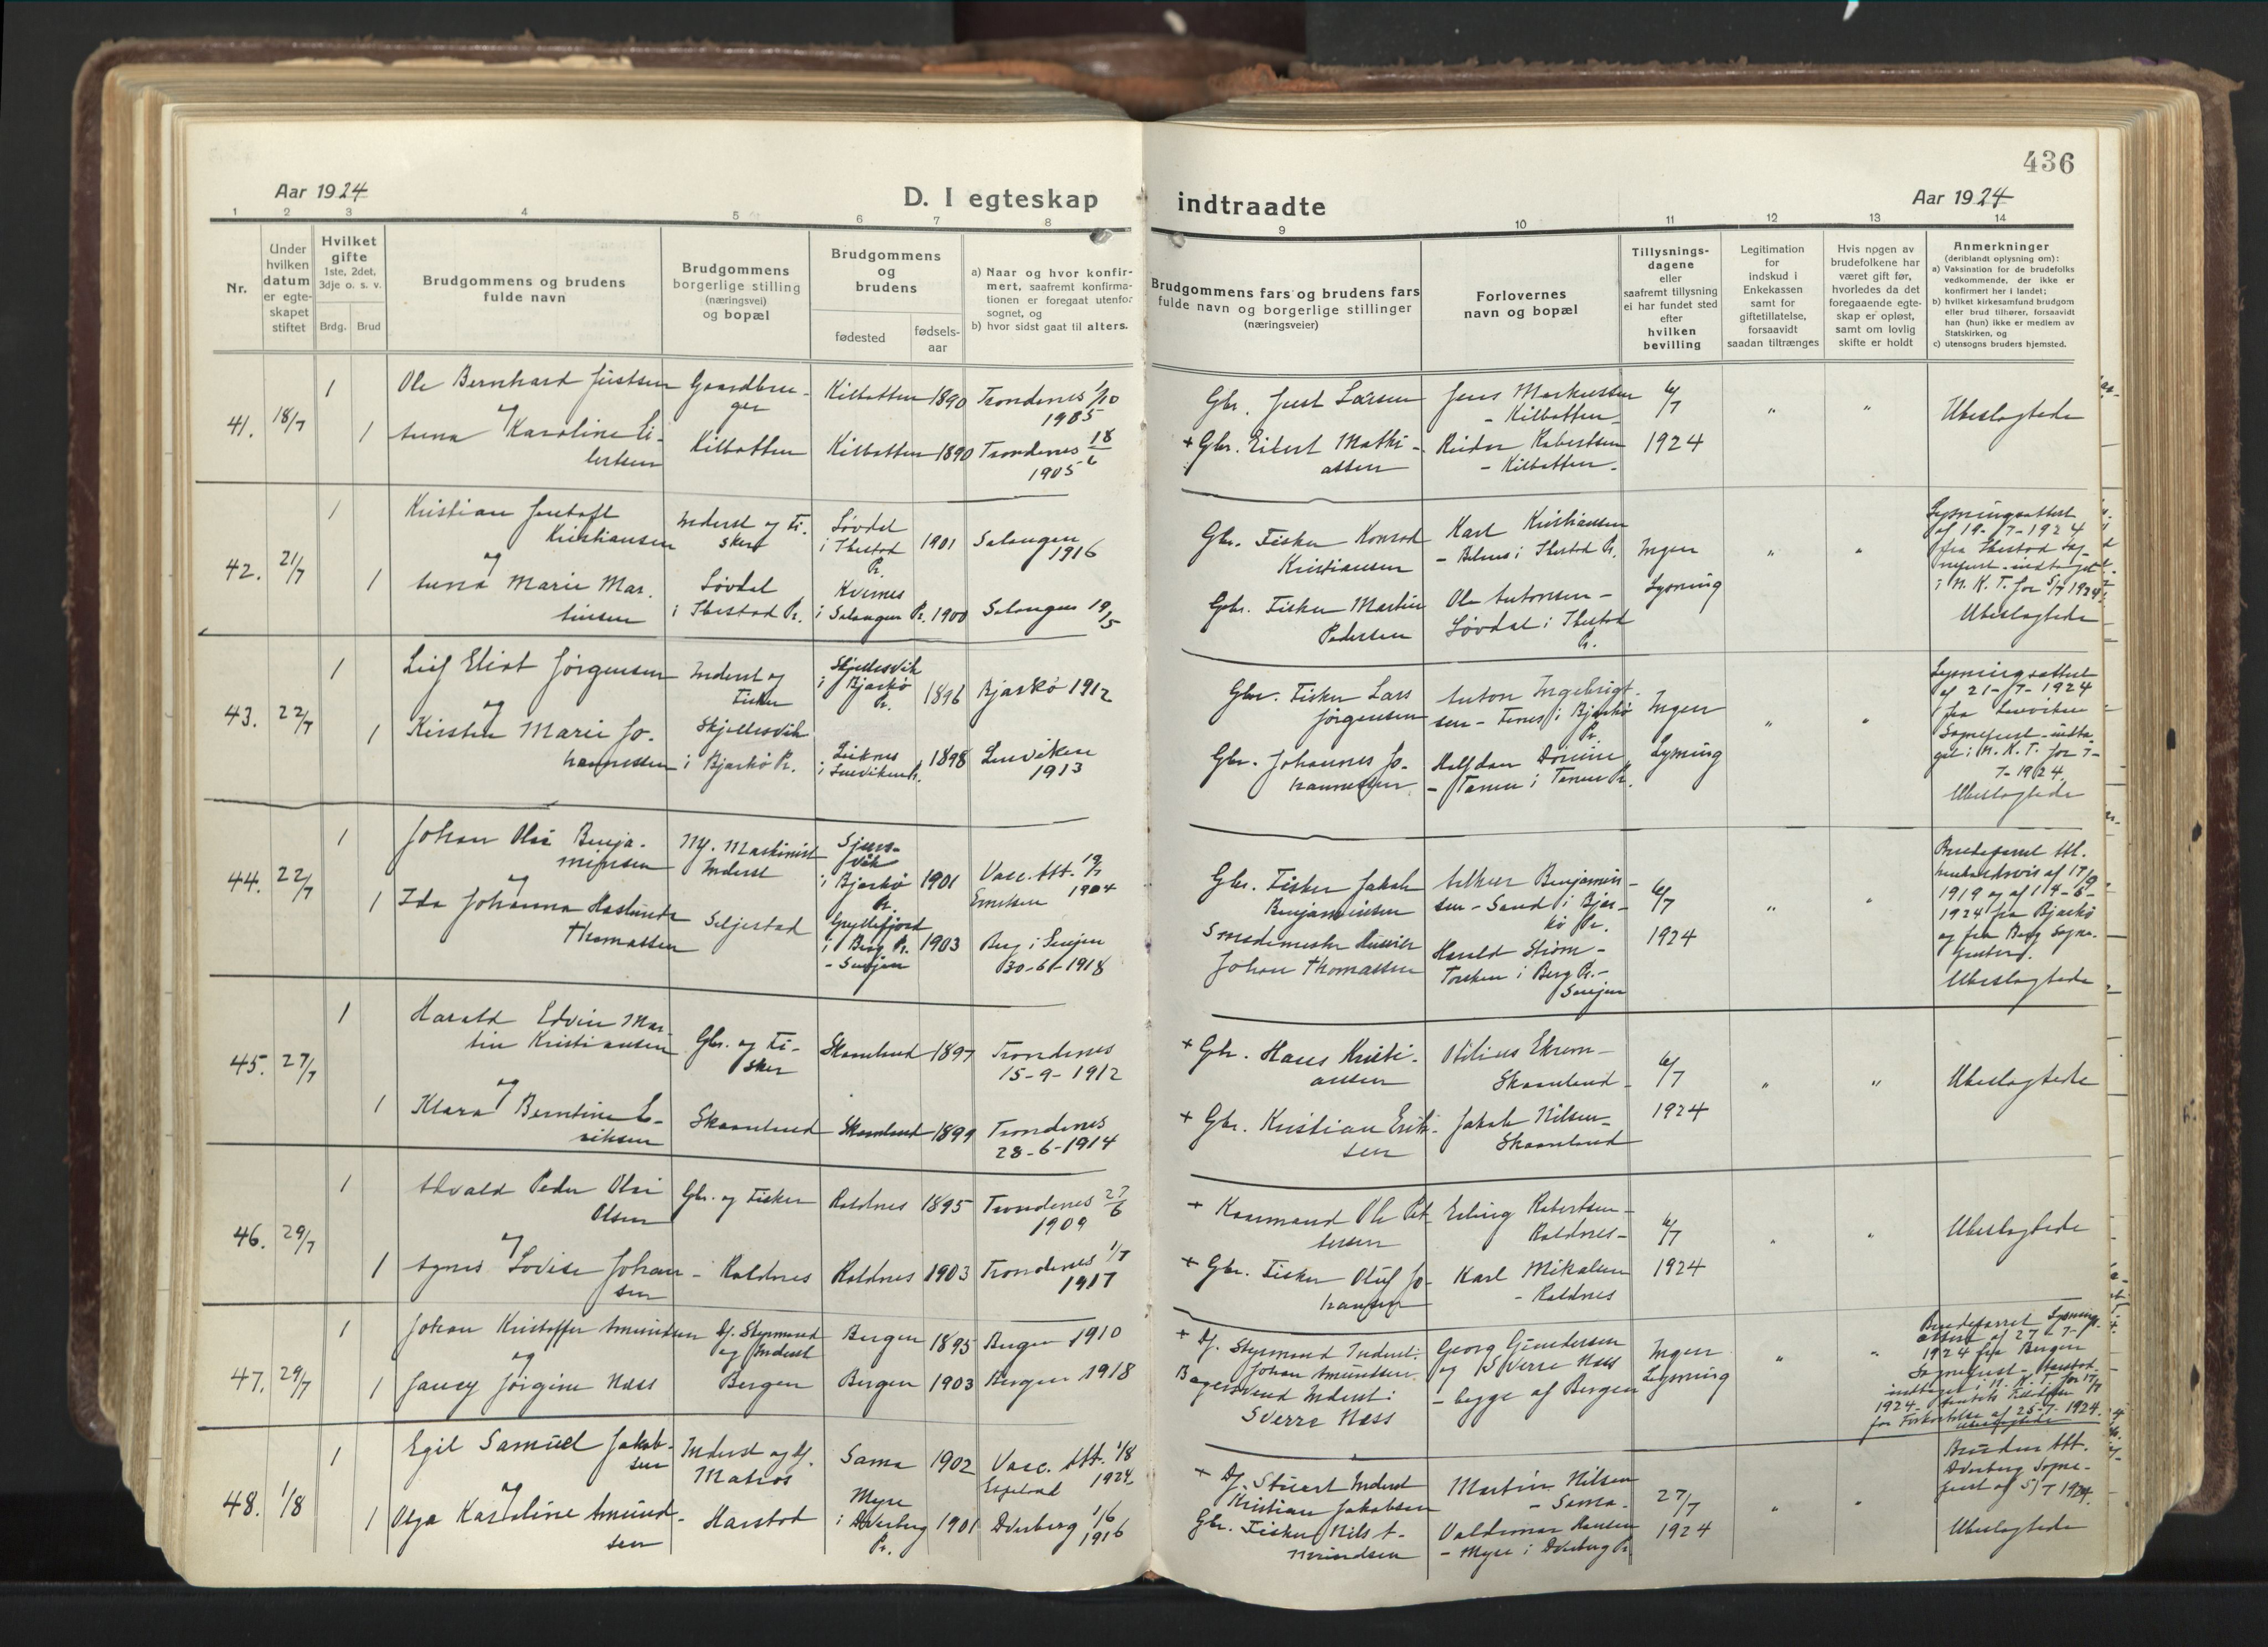 436
Aar 1924
D. I egteskap
indtraadte
Aar 1924
1 2 3 4 5 6 7 8 9 10 11 12 13 14
Nr.
Under
hvilken
datum
er egte-
skapet
stiftet
Hvilket
gifte
1ste, 2det,
3dje o. s. v.
Brdg. Brud
Brudgommens og brudens
fulde navn
Brudgommens
borgerlige stilling
(næringsvei)
og bopæl
Brudgommens
og
brudens
fødested
fødsels-
aar
a) Naar og hvor konfir-
mert, saafremt konfirma-
tionen er foregaat utenfor
sognet, og
b) hvor sidst gaat til alters.
Brudgommens fars og brudens fars
fulde navn og borgerlige stillinger
(næringsveier)
Forlovernes
navn og bopæl
Tillysnings-
dagene
eller
saafremt tillysning
ei har fundet sted
efter
hvilken
bevilling
Legitimation
for
indskud i
Enkekassen
samt for
giftetillatelse,
forsaavidt
saadan tiltrænges
Hvis nogen av
brudefolkene har
været gift før,
hvorledes da det
foregaaende egte-
skap er opløst,
samt om lovlig
skifte er holdt
Anmerkninger
(deriblandt oplysning om):
a) Vaksination for de brudefolks
vedkommende, der ikke er
konfirmert her i landet;
b) hvilket kirkesamfund brudgom
eller brud tilhører, forsaavidt
han (hun) ikke er medlem av
Statskirken, og
c) utensogns bruders hjemsted.
41. 18/7
1 Ole Bernhard Justsen
og
1 Anna Karoline Ei-
lertsen
Gaardbru-
ger
Kilbotten
Kilbotten 1890 Trondenes 1/10
1905
Kilbotten 1890 Trondenes 18/6
1905
Gbr. Just Larsen
+ Gbr. Eilert Mathi-
assen
Jens Markussen
- Kilbotten
Reidar Robertsen
- Kilbotten -
6/7
1924
" "
Ubeslægtede
42. 21/7
1 Kristian Jentoft
Kristiansen
og
1 Anna Marie Mar-
tinsen
Inderst og Fi-
sker
Løvdal
i Ibestad Pr.
Løvdal
i Ibestad
Pr.
1901 Salangen
1916
Kvernes
i Salangen Pr. 1900 Salangen 19/5
Gbr. Fisker Konrad
Kristiansen
Gbr. Fisker Martin
Pedersen
Karl Kristiansen
i Ibestad Pr.
Ole Antonsen -
Løvdal i Ibestad
Pr.
Ingen
Lysning
" "
Lysningsattest
af 19-7-1924
fra Ibestad Sog-
neprest - indtaget
i N. K. T. for 5/7 1924
Ubeslægtede
43. 22/7
1 Leif Eliot Jørgensen
og
1 Kirsten Marie Jo-
hannessen
Inderst og
Fisker
Skjellesvik
i Bjarkø Pr.
Skjellesvik
i Bjarkø
Pr.
1896 Bjarkø 1912
i Lenviken Pr. 1898 Lenviken
1913
Gbr. Fisker Lars
Jørgensen
Gbr. Johannes Jo-
hannessen
Anton Ingebrigt-
sen - i Bjarkø
Pr.
Halfdan
Ingen
Lysning
" "
Lysningsattest
af 21-7-1924
fra Lenviken
Sogneprest - indta-
get i N. K. T. for 7-
7-1924
Ubeslægtede
44. 22/7
1 Johan Olai Benja-
minsen
og
1 Ida Johanna Haslunde
Thomassen
Maskinist
Inderst
Seljestad
i Bjarkø
Pr.
1901 Vacc. Att. 19/7
1904
Gryllefjord
i Berg Pr.
- Senjen
1903 Berg i Senjen
30-6-1918
Gbr. Fisker Jakob
Benjaminsen
Johan Thomassen
Arthur Benjamin-
sen - Sand i Bjar-
kø Pr.
Harald Strøm -
Torsken i Berg Pr. -
Senjen
6/7
1924
" "
Brudeparret Att.
henholdsvis af 17/9
1919 og af 14-6-
1924 fra Bjarkø
og fra Berg Sogne-
prester.
Ubeslægtede
45. 27/7
1 Harald Edvin Mar-
tin Kristiansen
og
1 Klara Berntine E-
riksen
Gbr. og Fi-
sker
Skaanland
Skaanland 1897 Trondenes
15-9-1912
Skaanland 1899 Trondenes
28-6-1914
+ Gbr. Hans Kristi-
ansen
+ Gbr. Kristian Erik-
sen
Otilius Ekrem -
Skaanland -
Jakob Nilsen -
Skaanland
6/7
1924
" "
Ubeslægtede
46. 29/7
1 Alvald Peder Olai
Olsen
og
1 Agnes Lovise Johan-
sen
Gbr. og Fisker
- Roldnes
Roldnes 1895 Trondenes 27/6
1909
Roldnes 1903 Trondenes 1/7
1917
+ Ole Pet-
tersen
+ Gbr. Fisker Oluf Jo-
hansen
Erling Robertsen -
Roldnes -
Karl Mikalsen
- Roldnes
6/7
1924
" "
Ubeslægtede
47. 29/7
1 Johan Kristoffer Amundsen
og
1 Jancy Jørgine Næss
Df. Styrmand
og Inderst
Bergen
Bergen 1895 Bergen 1910
Bergen 1903 Bergen 1918
+ Df. Styrmand Inderst:
Johan Amundsen
Bagersvend Inderst:
Sverre Næss
Georg Gundersen
og Sverre Næss
- begge af Bergen
Ingen
Lysning
" "
Brudeparret Lysnings-
attest af 27-7-
1924 fra Bergen
Sogneprest - Harstad
indtaget i N. K. T. for 17/7
1924
for Forkortelse af 25-7-1924.
Ubeslægtede
48. 1/8
1 Egil Samuel Jakob-
sen
og
1 Olga Karoline Amund-
sen
Inderst og Df.
Matros
Harstad
Sama 1902 Vacc. Att. 1/8
1924
Myre
i Dverberg
Pr.
1901 Dverberg 1/6
1916
+ Df. Stuert Inderst
Kristian Jakobsen
Gbr. Fisker Nils A-
mundsen
Martin Nilsen
- Sama -
Valdemar Hansen
- Myre i Dverberg Pr.
27/7
1924
" "
Bruden Att.
Dverberg Sogne-
prest af 5/7 1924.
Ubeslægtede